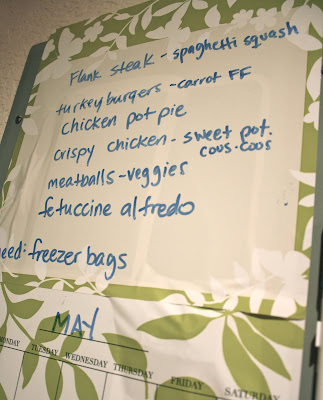 flank steak - spaghetti squash
turkey burgers - carrot FF
chicken pot pie
crispy chicken - sweet pot.
cous-coos
meatballs - veggies
fetuccine alfredo
need: freezer bags
MAY
MONDAY TUESDAY WEDNESDAY THURSDAY FRIDAY SATURDAY